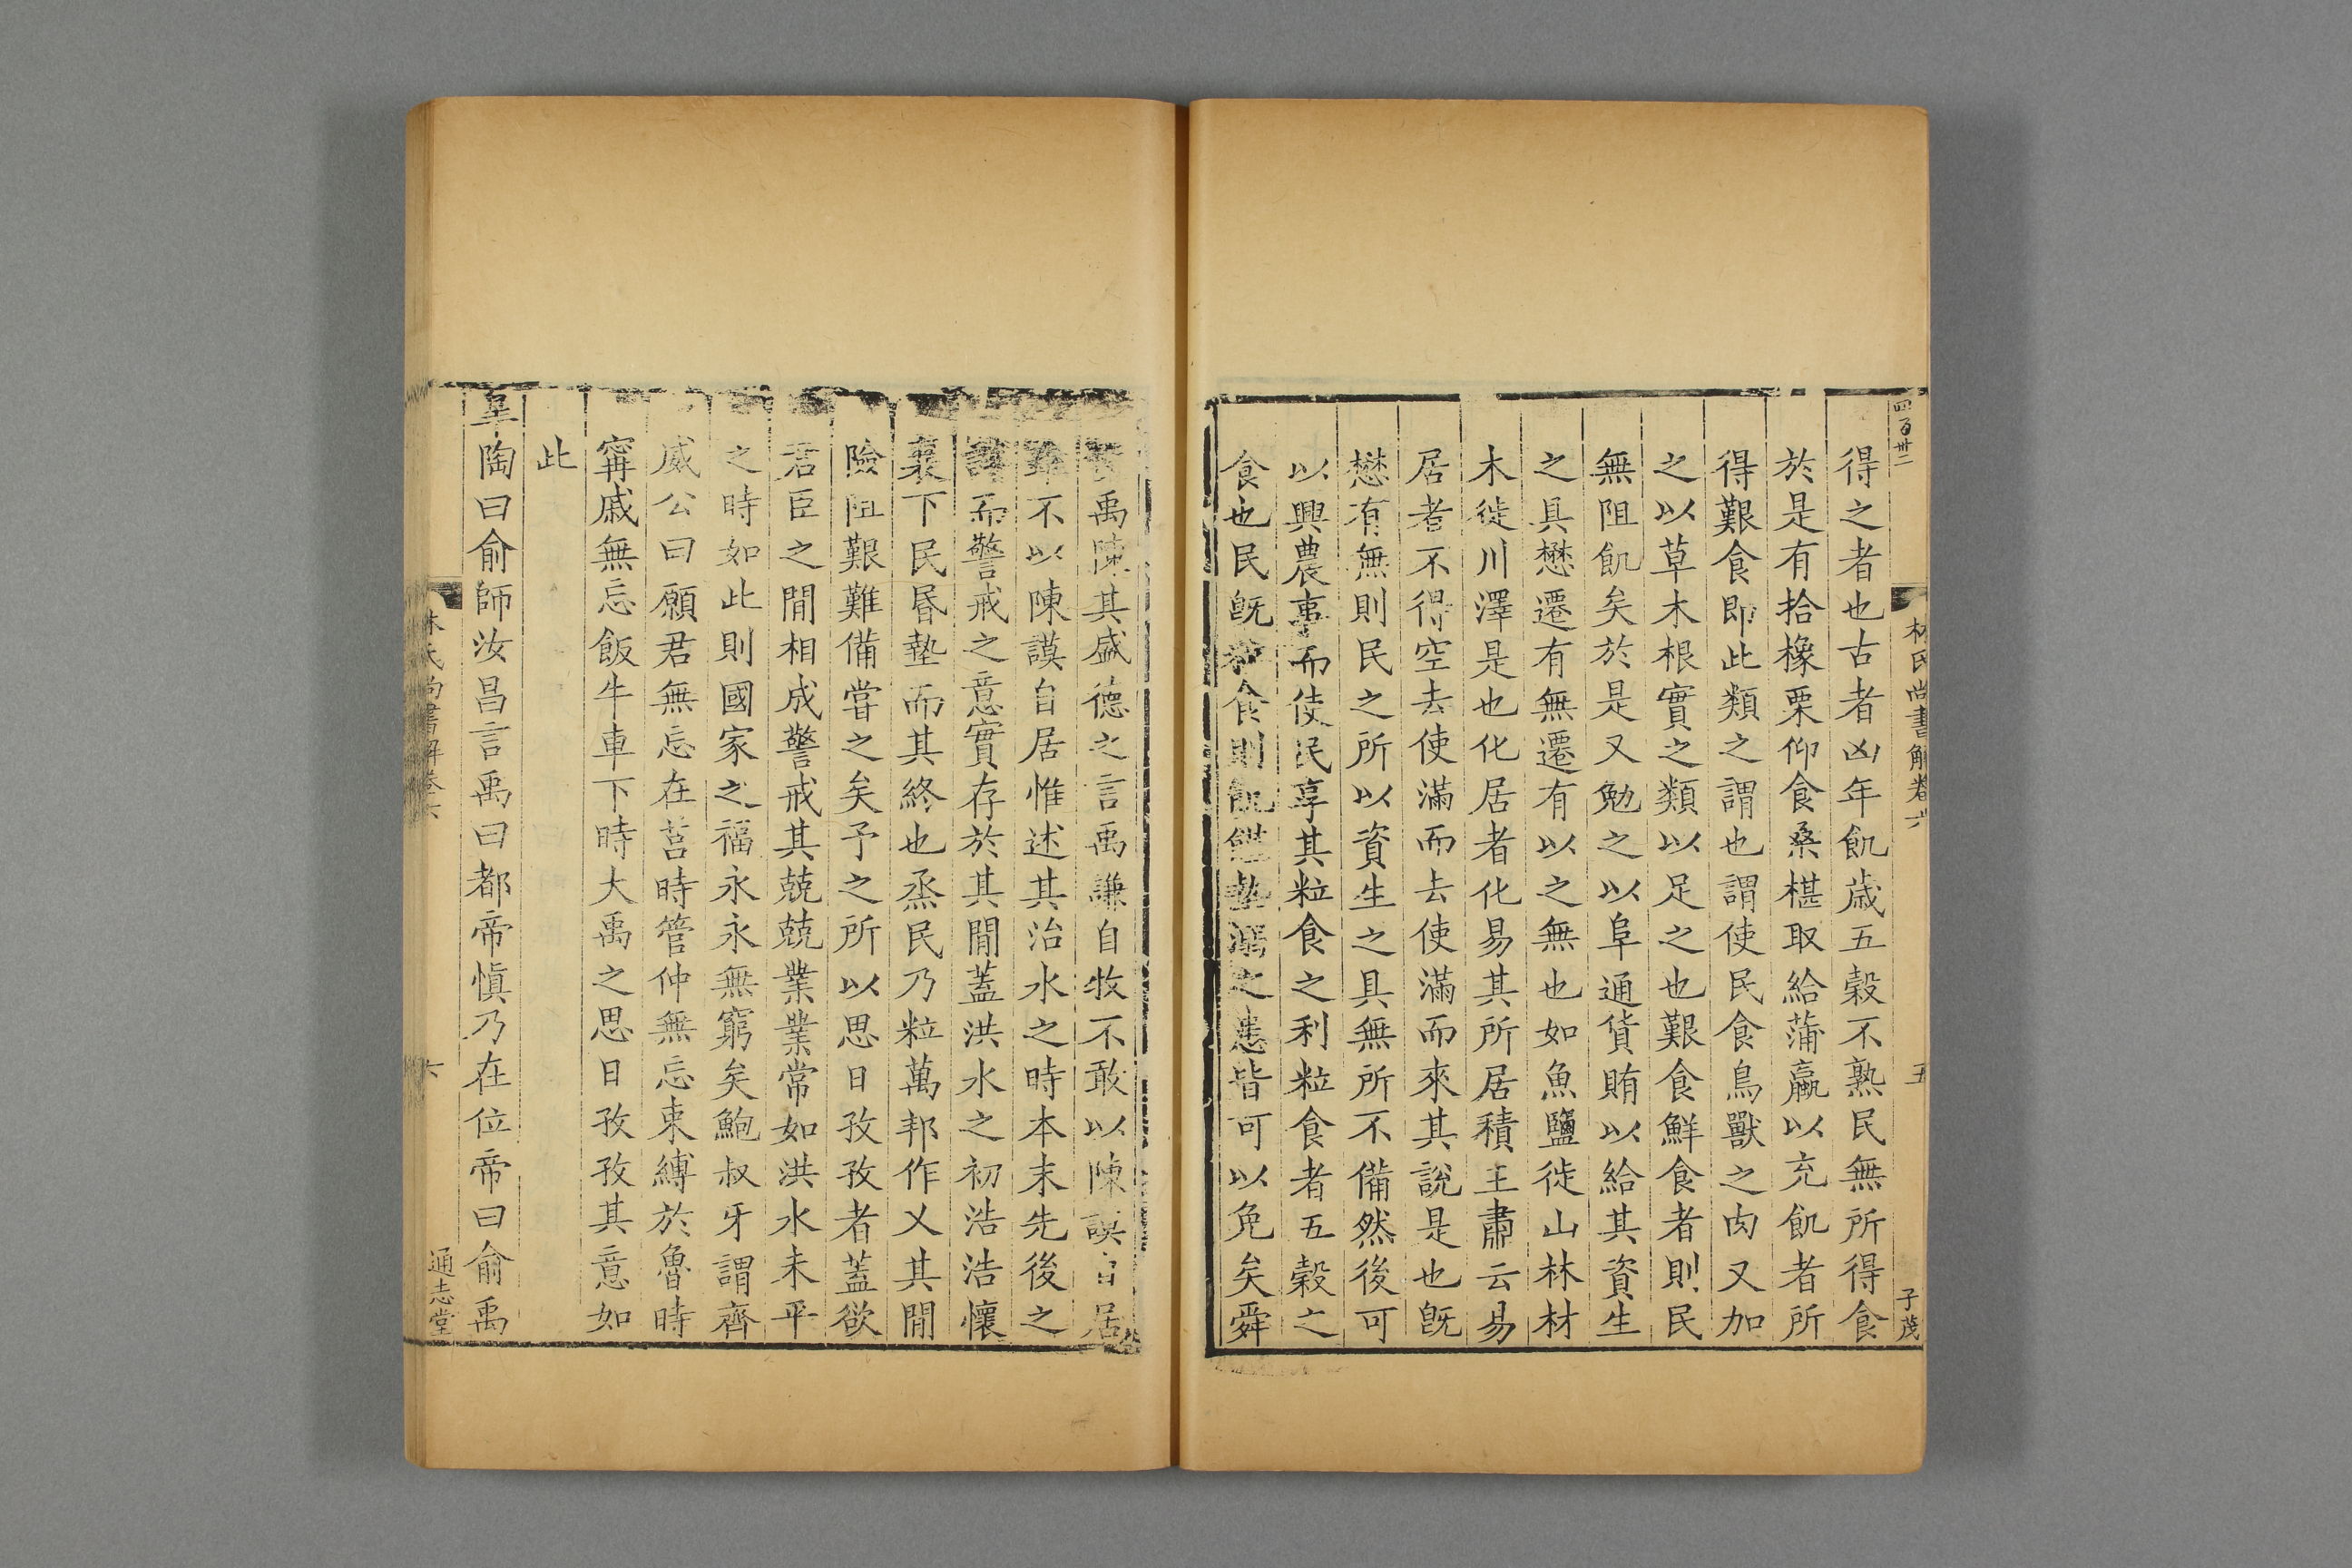 四百卅二
林氏尚書解卷六
五
子茂
得之者也古者凶年飢歳五穀不熟民無所得食
於是有拾橡栗仰食桑椹取給蒲蠃以充飢者所
得艱食即此類之謂也謂使民食鳥獸之肉又加
之以草木根實之類以足之也艱食鮮食者則民
無阻飢矣於是又勉之以阜通貨賄以給其資生
之具懋遷有無遷有以之無也如魚鹽徙山林材
木徙川澤是也化居者化易其所居積王肅云易
居者不得空去使滿而去使滿而來其說是也旣
懋有無則民之所以資生之具無所不備然後可
以興農事而使民享其粒食之利粒食者五穀之
食也民旣食則飢墊溺之患皆可以免矣舜
禹陳其盛德之言禹謙自牧不敢以陳謨自居
不以陳謨自居惟述其治水之時本末先後之
而警戒之意實存於其閒蓋洪水之初浩浩懷
襄下民昬墊而其終也烝民乃粒萬邦作乂其閒
險阻艱難備甞之矣予之所以思日孜孜者蓋欲
君臣之閒相成警戒其兢兢業業常如洪水未平
之時如此則國家之福永永無窮矣鮑叔牙謂齊
威公曰願君無忘在莒時管仲無忘束縛於魯時
甯戚無忘飯牛車下時大禹之思日孜孜其意如
此
皐陶曰俞師汝昌言禹曰都帝愼乃在位帝曰俞禹
林氏尚書解卷六
六
通志堂